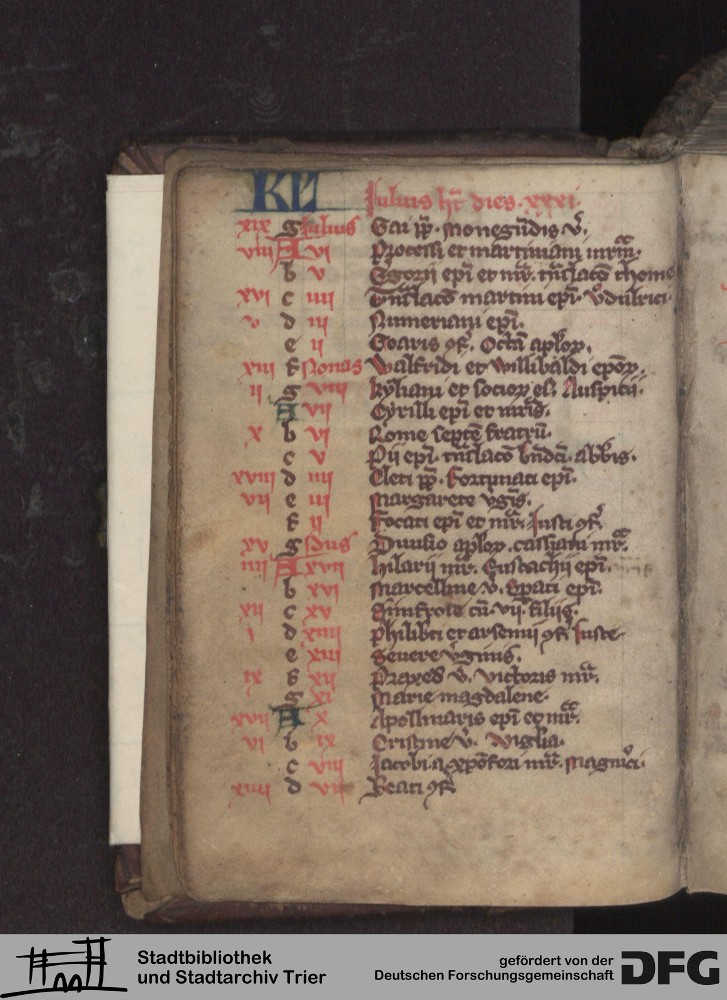 KL Iulius hꝫ dies. xxxi.
xix g Iulius Gai pp̄. Monegūdis v̄.
viii A vi Processi et martiniani mr̄m.
b v Ggorii epī et mr̄. tn̄slacō thome
xvi c iiii Tn̄slacō martini epī. vdalrici.
v d iii Numeriani epī.
e ii Goaris ꝯf. Octā aplōꝝ.
xiii f Nonas Walfridi et willibaldi epōꝝ.
ii g viii Kyliani et socioꝝ ei. Auspicii.
A vii Cyrilli epī et mr̄is.
x b vi Rome septē fratrū.
c v Pii epī. tn̄slacō bn̄dci. abbīs.
xviii d iiii Cleti pp̄. Fortunati epī.
vii e iii Margarete vgīs.
f ii Focati epī et mr̄. Iusti ꝯf.
xv g Idus Diuisio aplōꝝ. cassiani mr̄.
iiii A xvii Hilarii mr̄. Eustachii epī.
b xvi Marcelline v̄. Spati epī.
xii c xv Simfrose cū. vii. filiis.
i d xiiii Philibti et arsenii ꝯf. Iuste
e xiii Seuere vginis.
ix f xii Praxed v̄. victoris mr̄.
g xi Marie magdalene.
xvii A x Apollinaris epī et mr̄.
vi b ix Cristine v̄. Vigilia.
c viii Iacobi. a. xpōfori mr̄. Magnici.
xiiii d vii Beati ꝯf.
Stadtbibliothek
und Stadtarchiv Trier
gefördert von der
Deutschen Forschungsgemeinschaft
DFG